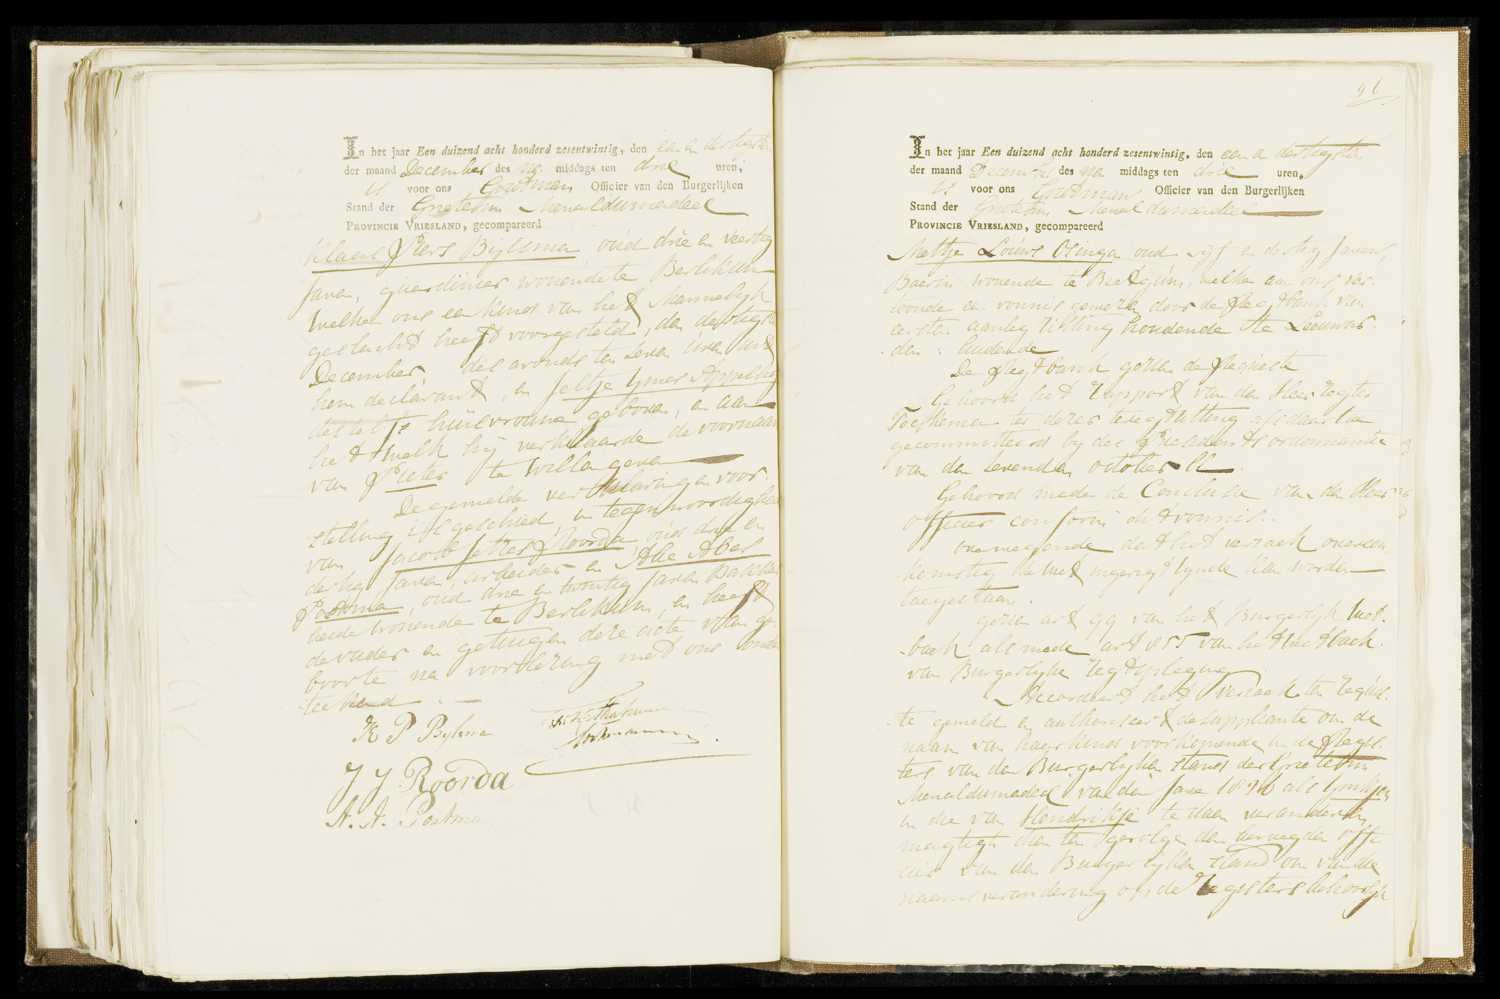 In het jaar Een duizend acht honderd zesentwintig, den een en dertigste
der maand December des na middags ten drie uren,
is voor ons Grietman, Officier van den Burgerlijken
Stand der Grietenij Menaldumadeel
PROVINCIE VRIESLAND, gecompareerd
Klaas Piers Bijlsma oud drie en veertig
Jaren, wonende te Berlikum
welke ons een kind van het Mannelijk
geslacht heeft voorgesteld, den dertigste
December des avonds ten zeven uren uit
hem declarant, en Jeltje
deszelfs huisvrouw geboren, en aan
het welk hij verklaarde de voornaam
van Pieter te willen geven
Deze gemelde verklaring en voor-
stelling is geschied in tegenwoordigheid
van Jacob Roorda oud drie en
dertig Jaren arbeider en Ate Abes
Postma, oud drie en twintig Jaren Bakker
beide wonende te Berlikum, en heeft
de vader en getuigen deze acte van ge
boorte na voorlezing met ons onder
tekend
K P Bijlsma
J J Roorda
A. A. Postma
91
In het jaar Een duizend acht honderd zesentwintig, den een en dertigsten
der maand December des na middags ten drie uren,
is voor ons Grietman, Officier van den Burgerlijken
Stand der Grietenij Menaldumadeel
PROVINCIE VRIESLAND, gecompareerd
Mettje Louws Osinga oud vijf en dertig Jaren,
Boerin wonende te Beetgum, welke aan ons ver-
toonde een vonnis gewezen door de Regtbank van
eersten aanleg zitting houdende te Leeuwar-
den: luidende
De Regtbank gezien de Requeste
Gehoord het Rapport van den Heer Regter
ter dezer teregtzitting
gecommitteerd bij des Presidents ordonnantie
van den zevenden october ll.
Gehoord mede de Conclusie van den Heer
officier conform dit vonnis.
overwegende dat het verzoek overeen
komstig de wet ingerigt zijnde kan worden
toegestaan.
gezien art 99 van het Burgerlijk Wet-
boek alsmede art 855 van het Wetboek
van Burgerlijke Regtspleging
Accordeert het verzoek ten requeste
te gemeld en authoriseert de suppliante om de
naam van haar kind voorkomende in de Regis-
ters van den Burgerlijken Stand der Grietenij
Menaldumadeel van den Jare als
in die van Hendrikje te doen veranderen,
magtigt dien ten gevolge den bevoegden offi
cier van den Burgerlijken stand om van de
naamsverandering op de Registers behoorlijk